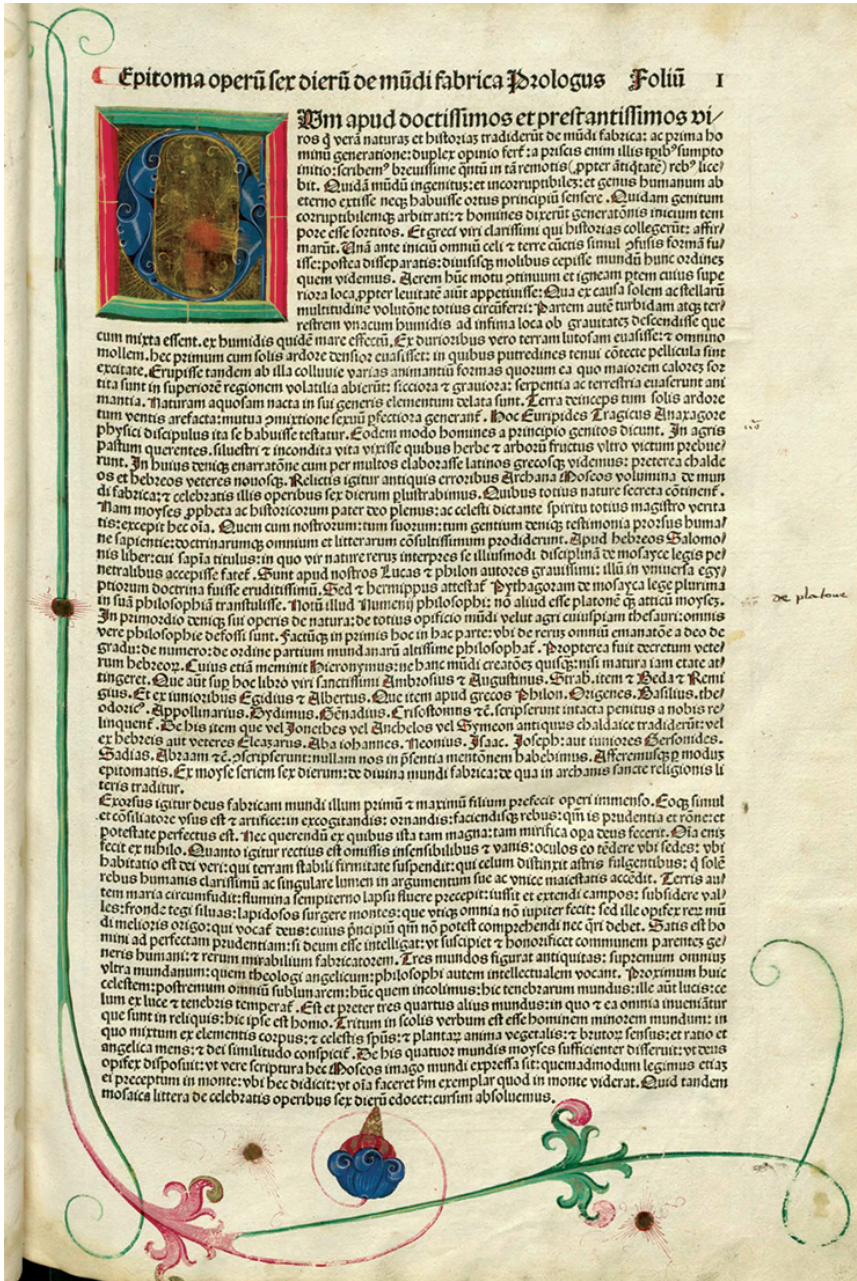 Epitoma operū sex dierū de mūdi fabrica Prologus Foliū I
Um apud doctissimos et prestantissimos vi/
ros q̇ verā naturaꝫ et historiaꝫ tradiderūt de mūdi fabrica: ac prima ho
minū generatione: duplex opinio fert᷑: a priscis enim illis tꝑibꝰ sumpto
initio: scribemꝰ breuissime qntū in tā remotis (ꝓpter ātiq̇tatē) rebꝰ lice
bit. Quidā mūdū ingenituꝫ: et incorruptibileꝫ: et genus humanum ab
eterno extisse neqꝫ habuisse ortus principiū sensere. Quidam genitum
corruptibilemqꝫ arbitrati: ⁊ homines dixerūt generatōnis inicium tem
pore esse sortitos. Et greci viri clarissimi qui historias collegerūt: affir
marūt. Unā ante iniciū omniū celi ⁊ terre cūctis simul ꝯfusis formā fu
isse: postea disseparatis: diuisisqꝫ molibus cepisse mundū hunc ordineꝫ
quem videmus. Aerem hūc motu ꝯtinuum et igneam ꝑtem cuius supe
riora loca ꝓpter leuitatē aiūt appetiuisse: Qua ex causa solem ac stellarū
multitudine volutōne totius circūferri: Partem autē turbidam atqꝫ ter
restrem vnacum humidis ad infima loca ob grauitateꝫ descendisse que
cum mixta essent. ex humidis quidē mare effectū. Ex durioribus vero terram lutosam euasisse: ⁊ omnino
mollem. hec primum cum solis ardore densior euasisset: in quibus putredines tenui cōtecte pellicula sint
excitate. Erupisse tandem ab illa colluuie varias animantiū formas quorum ea quo maiorem calorēs sor
tita sunt in superiorē regionem volatilia abierūt: sicciora ⁊ grauiora: serpentia ac terrestria euaserunt ani
mantia. Naturam aquosam nacta in sui generis elementum delata sunt. Terra deinceps tum solis ardore
tum ventis arefacta: mutua ꝯmixtione sexuū ꝑfectiora generant᷑. Hoc Euripides Tragicus Anaxagore
physici discipulus ita se habuisse testatur. Eodem modo homines a principio genitos dicunt. In agris
pastum querentes. siluestri ⁊ incondita vita vixisse quibus herbe ⁊ arborū fructus vltro victum prebue
runt. In huius deniqꝫ enarratōne cum per multos elaborasse latinos grecosqꝫ videmus: preterea chalde
os et hebreos veteres nouosqꝫ. Relictis igitur antiquis erroribus Archana Moseos volumina de mun
di fabrica: ⁊ celebratis illis operibus sex dierum ꝑlustrabimus. Quibus totius nature secreta cōtinent᷑.
Nam moyses ꝓpheta ac historicorum pater deo plenus: ac celesti dictante spiritu totius magistro verita
tis: excepit hec oīa. Quem cum nostrorum: tum suorum: tum gentium deniqꝫ testimonia prorsus huma
ne sapientie: doctrinarumqꝫ omnium et litterarum cōsultissimum prodiderunt. Apud hebreos Salomo
nis liber: cui sapīa titulus: in quo vir nature reruꝫ interpres se illiusmodi disciplinā de mosayce legis pe
netralibus accepisse fatet᷑. Sunt apud nostros Lucas ⁊ philon autores grauissimi: illū in vniuersa egy
ptiorum doctrina fuisse eruditissimū. Sed ⁊ hermippus attestat᷑ Pythagoram de mosayca lege plurima
in suā philosophiā transtulisse. Notū illud Numenij philosophi: nō aliud esse platonē qꝫ atticū moyseꝫ.
In primordio deniqꝫ sui operis de natura: de totius opificio mūdi velut agri cuiuspiam thesauri: omnis
vere philosophie defossi sunt. Factūqꝫ in primis hoc in hac parte: vbi de rerus omniū emanatōe a deo de
gradu: de numero: de ordine partium mundanarū altissime philosophat᷑. Propterea fuit decretum vete
rum hebreoꝝ. Cuius etiā meminit Hieronymus: ne hanc mūdi creatōeꝫ quisqꝫ: nisi matura iam etate at
tingeret. Que aūt suꝑ hoc libro viri sanctissimi Ambrosius ⁊ Augustinus. Strab. item ⁊ Beda ⁊ Remi
gius. Et ex iunioribus Egidius ⁊ Albertus. Que item apud grecos Philon. Origenes. Basilius. the
odoricꝰ. Appollinarius. Dydimus. Gēnadius. Crisostomus ⁊ c̄. scripserunt intacta penitus a nobis re
linquent᷑. De his item que vel Jonethes vel Anchelos vel Symeon antiquus chaldaice tradiderūt: vel
ex hebreis aut veteres Eleazarus. Aba iohannes. Neonius. Isaac. Joseph: aut iuniores Gersonides.
Sadias. Abraam ⁊ c̄. ꝯscripserunt: nullam nos in p̄sentia mentōnem habebimus. Afferemusqꝫ ꝑ moduꝫ
epitomatis. Ex moyse seriem sex dierum: de diuina mundi fabrica: de qua in archanis sancte religionis li
teris traditur.
Exorsus igitur deus fabricam mundi illum primū ⁊ maximū filium prefecit operi immenso. Eoqꝫ simul
et cōsiliatore vsus est ⁊ artifice: in excogitandis: ornandis: faciendisqꝫ rebus: qm̄ is prudentia et rōne: et
potestate perfectus est. Nec querendū ex quibus ista tam magna: tam mirifica oꝑa deus fecerit. Oīa eniꝫ
fecit ex nihilo. Quanto igitur rectius est omissis insensibilibus ⁊ vanis: oculos eo tēdere vbi sedes: vbi
habitatio est dei veri: qui terram stabili firmitate suspendit: qui celum distinxit astris fulgentibus: q̇ solē
rebus humanis clarissimū ac singulare lumen in argumentum sue ac vnice maiestatis accēdit. Terris au
tem maria circumfudit: flumina sempiterno lapsu fluere precepit: iussit et extendi campos: subsidere val
les: fronde tegi siluas: lapidosos surgere montes: que vtiqꝫ omnia nō iupiter fecit: sed ille opifex reꝝ mū
di melioris origo: qui vocat᷑ deus: cuius p̄ncipiū qm̄ nō potest comprehendi nec q̇ri debet. Satis est ho
mini ad perfectam prudentiam: si deum esse intelligat: vt suscipiet ⁊ honorificet communem parenteꝫ ge/
neris humani: ⁊ rerum mirabilium fabricatorem. Tres mundos figurat antiquitas: supremum omniuꝫ
vltra mundanum: quem theologi angelicum: philosophi autem intellectualem vocant. Proximum huic
celestem: postremum omniū sublunarem: hūc quem incolimus: hic tenebrarum mundus: ille aūt lucis: ce
lum ex luce ⁊ tenebris temperat᷑. Est et preter tres quartus alius mundus: in quo ⁊ ea omnia inueniātur
que sunt in reliquis: hic ipse est homo. Tritum in scolis verbum est esse hominem minorem mundum: in
quo mixtum ex elementis corpus: ⁊ celestis sp̄us: ⁊ plantaꝝ anima vegetalis: ⁊ brutoꝝ sensus: et ratio et
angelica mens: ⁊ dei similitudo conspicit᷑. De his quatuor mundis moyses sufficienter disseruit: vt deus
opifex disposuit: vt vere scriptura hec Moseos imago mundi expressa sit: quemadmodum legimus etiaꝫ
ei preceptum in monte: vbi hec didicit: vt oīa faceret s̄m exemplar quod in monte viderat. Quid tandem
mosaica littera de celebratis operibus sex dierū edocet: cursim absoluemus.
de platone